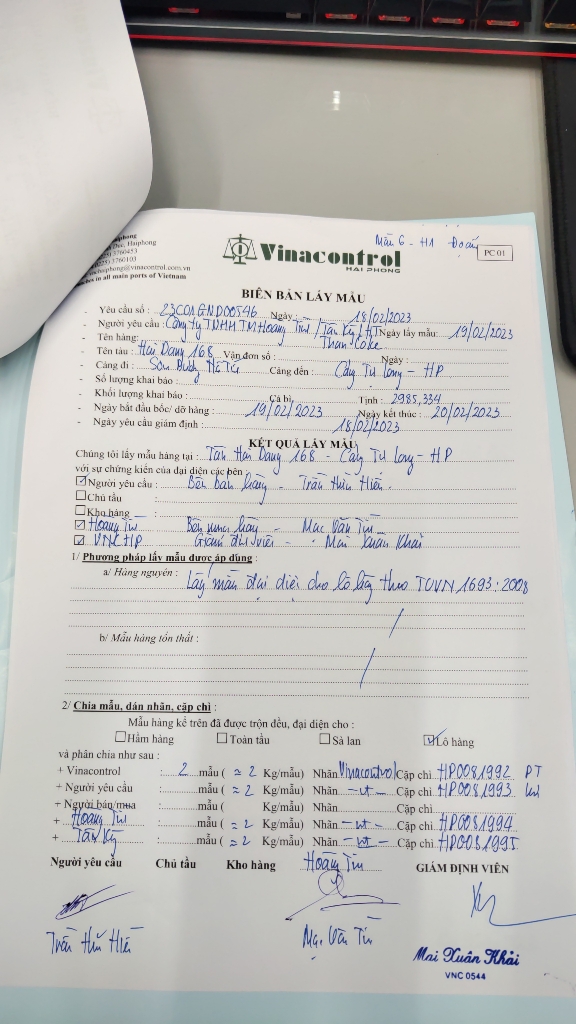 Mẫu 6 - H1 Đoạn
PC 01
Vinacontrol
HAI PHONG
Duc, Haiphong
3760453
(225) 3760103
haiphong@vinacontrol.com.vn
in all main ports of Vietnam
BIÊN BẢN LẤY MẪU
- Yêu cầu số : 23C01GND00546 Ngày : 18/02/2023
- Người yêu cầu : Công ty TNHH TM Hoàng Tín / Tân Kỳ / HT Ngày lấy mẫu: 19/02/2023
- Tên hàng: Than Coke
- Tên tàu : Hải Dang 168 Vận đơn số : Ngày :
- Cảng đi : Sơn Dương Hà Tĩnh Cảng đến : Cảng Tự Long - HP
- Số lượng khai báo :
- Khối lượng khai báo : Cả bì Tịnh : 2985,334
- Ngày bắt đầu bốc/ dỡ hàng : 19/02/2023 Ngày kết thúc : 20/02/2023
- Ngày yêu cầu giám định : 18/02/2023
KẾT QUẢ LẤY MẪU
Chúng tôi lấy mẫu hàng tại : Tàu Hải Dang 168 - Cảng Tự Long - HP
với sự chứng kiến của đại diện các bên :
Người yêu cầu : Bên bán hàng - Trần Hữu Hiến
Chủ tầu :
Kho hàng :
Hoàng Tín Bên mua hàng - Mạc Văn Tín
VNCHP Giám định viên - Mai Xuân Khải
1/ Phương pháp lấy mẫu được áp dụng :
a/ Hàng nguyên : Lấy mẫu đại diện cho lô hàng theo TCVN 1693:2008
b/ Mẫu hàng tổn thất :
2/ Chia mẫu, dán nhãn, cặp chì :
Mẫu hàng kể trên đã được trộn đều, đại diện cho :
Hầm hàng Toàn tầu Sà lan Lô hàng
và phân chia như sau :
+ Vinacontrol : 2 mẫu ( ≈ 2 Kg/mẫu) Nhãn Vinacontrol Cặp chì HP0081992 PT
+ Người yêu cầu : mẫu ( ≈ 2 Kg/mẫu) Nhãn - nt - Cặp chì HP0081993
+ Người bán/mua : mẫu ( Kg/mẫu) Nhãn Cặp chì
+ Hoàng Tín mẫu ( ≈ 2 Kg/mẫu) Nhãn - nt - Cặp chì HP0081994
+ Tân Kỳ mẫu ( ≈ 2 Kg/mẫu) Nhãn - nt - Cặp chì HP0081995
Người yêu cầu Chủ tầu Kho hàng Hoàng Tín GIÁM ĐỊNH VIÊN
Trần Hữu Hiến Mạc Văn Tín
Mai Xuân Khải
VNC 0544